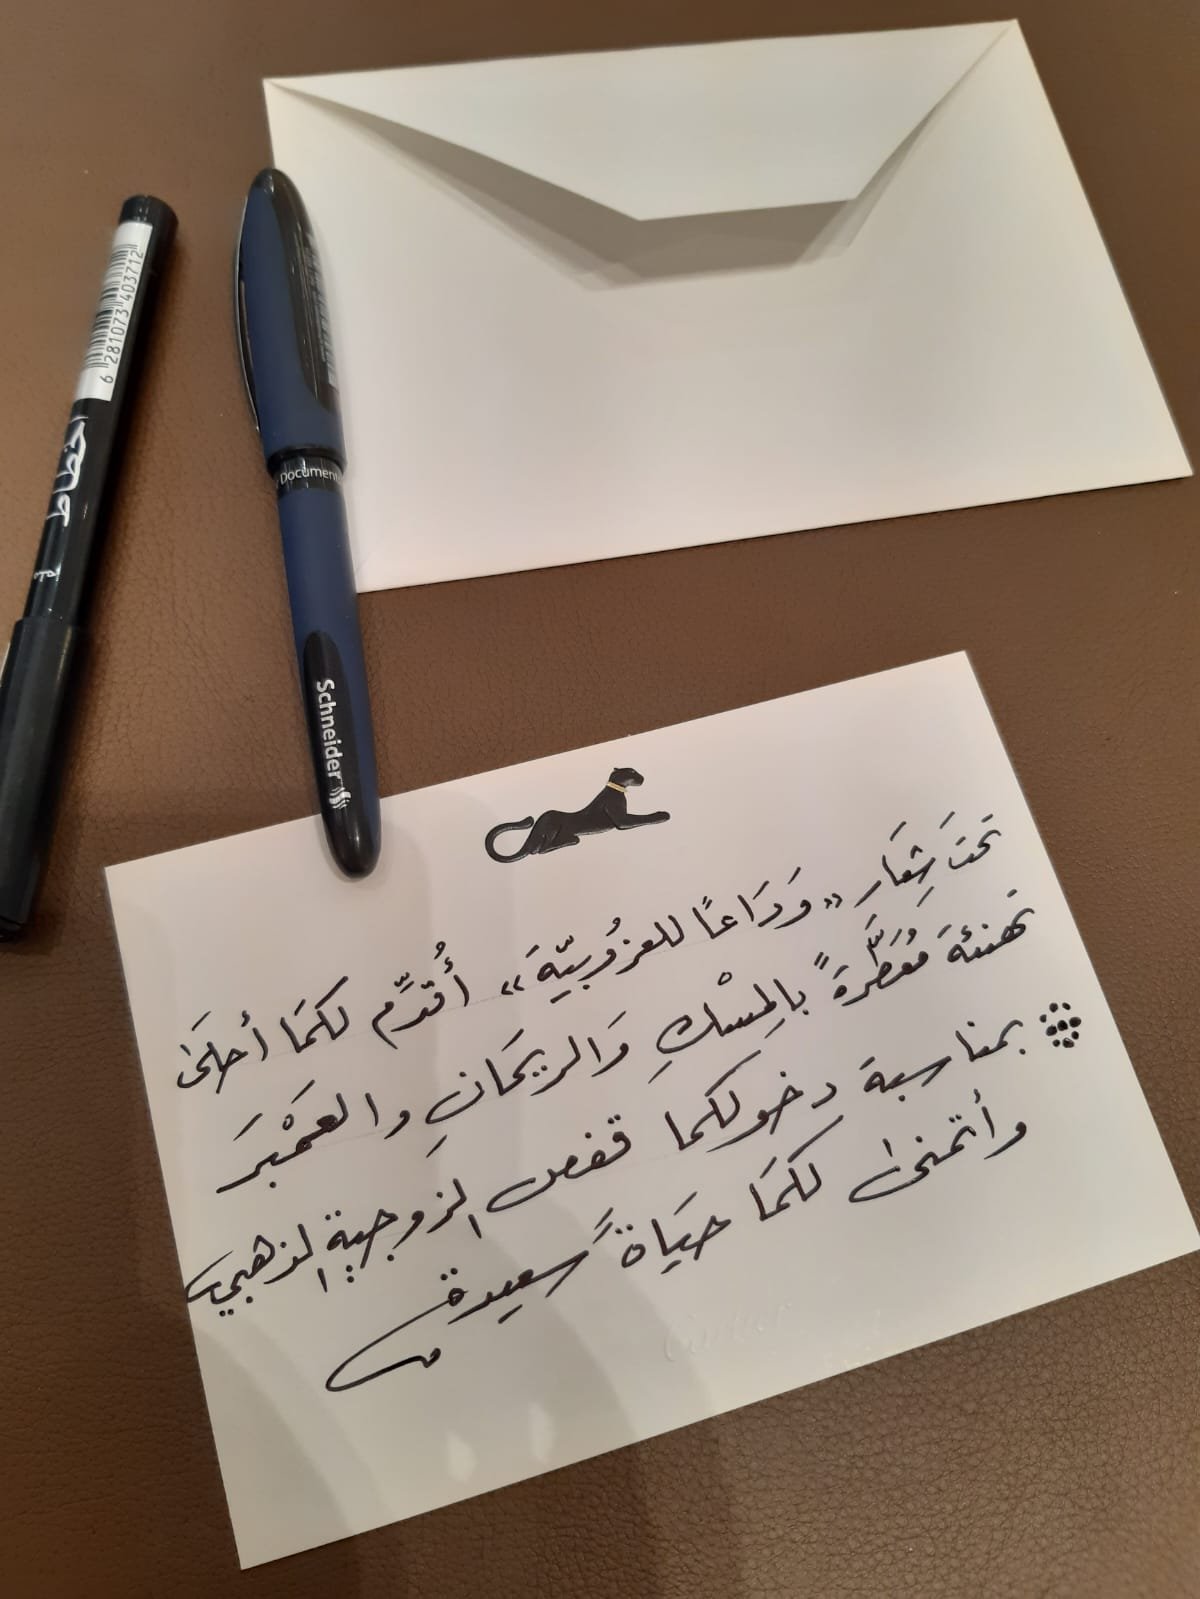 6 281073 403712
خطاط
Document
Schneider
تحتَ شِعَار «وَدَاعًا للعزُوبيّةَ» أُقدِّم لكمَا أحلَىٰ
تهنئةَ مُعَطَّرةً بالِمسْكِ وَالريحَانِ والعمْبرَ
بمناسبة دخولكما قفص الزوجيةِ الذهبي
وأتمنىٰ لكمَا حيَاةً سَعيدة
Cartier